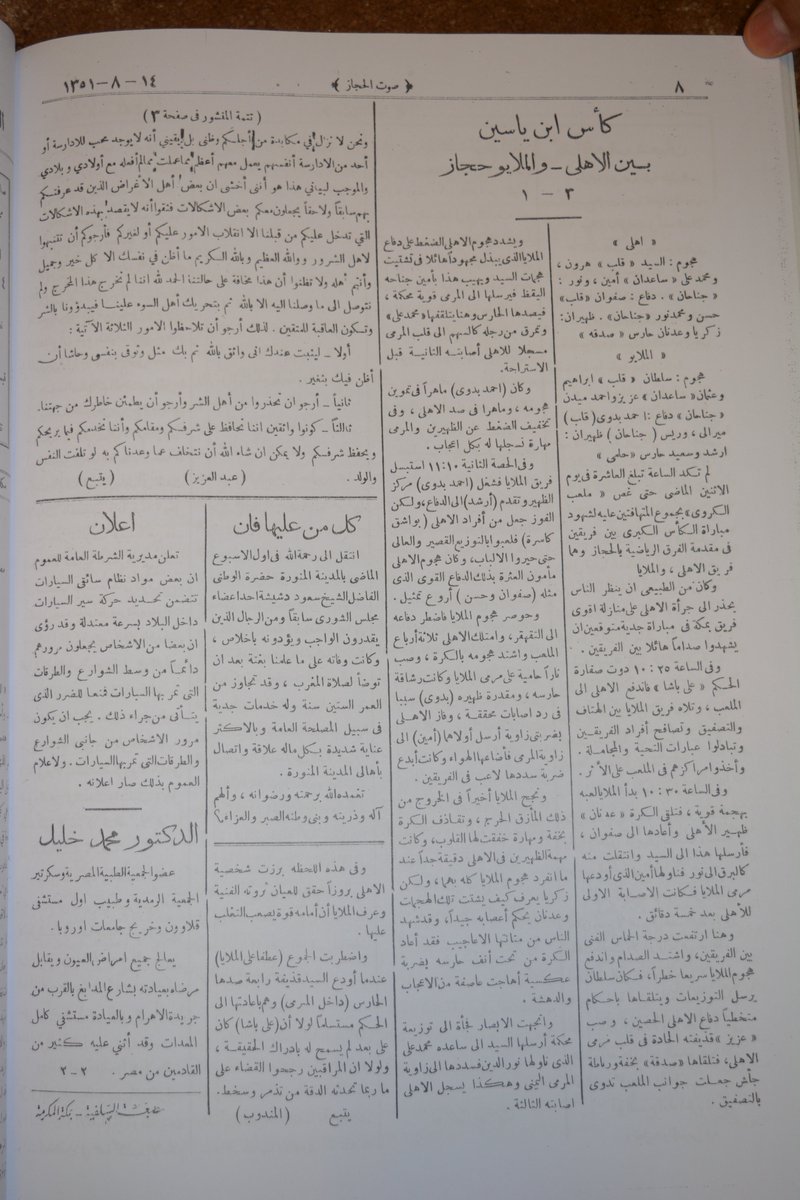 ٨
﴿ صوت الحجاز ﴾
١٤ – ٨ – ١٣٥١
كأس ابن ياسين
بين الاهلى – والملايو حجاز
٣ – ١
« اهلى »
هجوم : السيد « قلب » هرون ،
ومحمد على « ساعدان » أمين ، ونور :
« جناحان » . دفاع : صفوان « قلب »
حسن ومحمد نور « جناحان » . ظهيران :
زكريا وعدنان حارس « صدقه »
« الملايو »
هجوم : سلطان « قلب » ابراهيم
وعثمان « ساعدان » عزيز واحمد ميدن
« جناحان » دفاع : احمد بدوى ( قلب )
ميرالى ، وريس ( جناحان ) ظهيران :
ارشد وسعيد حارس « حلمى »
لم تكد الساعة تبلغ العاشرة فى يوم
الاثنين الماضى حتى غص « ملعب
الكروى » بجموع المتهافتين عليه لشهود
مباراة الكأس الكبرى بين فريقين
فى مقدمة الفرق الرياضية بالحجاز وهما
فريق الاهلى ، والملايا
وكان من الطبيعى ان ينظر الناس
بحذر الى جرأة الاهلى على منازلة اقوى
فريق بمكة فى مباراة جدية متوقعين ان
يشهدوا صداما هائلا بين الفريقين .
وفى الساعة ٢٥ : ١٠ دوت صفارة
الحكم « على باشا » فاندفع الاهلى الى
الملعب ، وتلاه فريق الملايا بين الهتاف
والتصفيق وتصافح أفراد الفريقين
وتبادلوا عبارات التحية والمجاملة .
وأخذوا مراكزهم فى الملعب على الأثر .
وفى الساعة ٣٠ : ١٠ بدأ الملايا لعبه
بهجمة قوية ، فتلقى الكرة « عدنان »
ظهير الأهلى وأعادها الى صفوان ،
فأرسلها هذا الى السيد وانتقلت منه
كالبرق الى نور فناولها أمين الذى أودعها
مرمى الملايا فكانت الاصابة الاولى
للأهلى بعد خمسة دقائق .
وهنا ارتفعت درجة الحماس الفنى
بين الفريقين ، واشتد الصدام واندفع
هجوم الملايا سريعا خطراً ، فكان سلطان
يرسل التوزيعات ويتلقاها باحكام
متخطياً دفاع الاهلى الحصين ، وصب
« عزيز » قذيفته الحادة فى قلب مرمى
الاهلى ، فتلقاها « صدقة » بخفة ورباطة
جأش جعلت جوانب الملعب تدوى
بالتصفيق .
ويشدد هجوم الاهلى الضغط على دفاع
الملايا الذى يبذل مجهوداً هائلا فى تشتيت
هجمات السيد ويهيب هذا بأمين جناحه
اليقظ فيرسلها الى المرمى قوية محكمة ،
فيصدها الحارس وهنا يتلقفها « محمد على »
وتمرق من رجله كالسهم الى قلب المرمى
مسجلا للاهلى أصابته الثانية قبل
الاستراحة .
وكان ( احمد بدوى ) ماهراً فى تموين
هجومه ، وماهرا فى صد الاهلى ، وفى
تخفيف الضغط عن الظهيرين والمرمى
مهارة نسجلها له بكل اعجاب .
وفى الحصة الثانية ١٠ : ١١ استبسل
فريق الملايا فشغل ( احمد بدوى ) مركز
الظهير وتقدم ( أرشد ) الى الدفاع ، ولكن
الفوز جعل من أفراد الاهلى ( بواشق
كاسرة ) فلعبوا بالتوزيع القصير والعالى
حتى حيروا الالباب ، وكان هجوم الاهلى
مأمون العثرة بذلك الدفاع القوى الذى
مثله ( صفوان وحسن ) أروع تمثيل .
وحوصر هجوم الملايا فاضطر دفاعه
الى التقهقر ، وامتلك الاهلى ثلاثة أرباع
الملعب واشتد هجومه بالكرة ، وصب
ناراً حامية على مرمى الملايا وكانت رشاقة
حارسه ، ومقدرة ظهيره ( بدوى ) سببا
فى رد اصابات محققة ، وفاز الاهلى
بضربتى زاوية أرسل أولاهما ( أمين ) الى
زاوية المرمى فأضاعها الهواء وكانت أبدع
ضربة سددها لاعب فى الفريقين .
ونجح الملايا أخيراً فى الخروج من
ذلك المأزق الحرج ، وتقاذف الكرة
بخفة ومهارة خفقت لها القلوب ، وكانت
مهمة الظهيرين فى الاهلى دقيقة جداً عند
ما انفرد هجوم الملايا كله بهما ، ولكن
زكريا يعرف كيف يشتت تلك الهجمات
وعدنان يحكم أعصابه جيداً ، وقد شهد
الناس من متانتها الاعاجيب فقد أعاد
الكرة من تحت أنف حارسه بضربة
عكسية أهاجت عاصفة من الاعجاب
والدهشة .
واتجهت الابصار فجأة الى توزيعة
محكمة أرسلها السيد الى ساعده محمد على
الذى ناولها نور الدين فسددها الى زاوية
المرمى اليمنى وهكذا يسجل الاهلى
اصابته الثالثة .
وفى هذه اللحظه برزت شخصية
الاهلى بروزاً حقق للعيان ثروته الفنية
وعرف الملايا أن أمامه قوة يصعب التغلب
عليها .
واضطربت الجموع ( عطفا على الملايا )
عندما أودع السيد قذيفة رابعة صدها
الحارس ( داخل المرمى ) وهم باعادتها الى
الحكم مستسلماً لولا أن ( على باشا ) كان
على بعد لم يسمح له بادراك الحقيقة ،
ولولا ان المراقبين رجحوا القضاء على
ما ربما تحدثه الدقة من تذمر وسخط .
يتبع ( المندوب )
( تتمة المنشور فى صفحة ٣ )
ونحن لا نزال فى مكابدة من أجلكم وظنى بل يقينى أنه لا يوجد محب للادارسة أو
أحد من الادارسة أنفسهم يعمل معهم أعظم مما عملت بما لم أفعله مع أولادي وبلادي
والموجب لبيانى هذا هو أننى أخشى ان بعض أهل الأغراض الذين قد عرفتكم
بهم سابقاً ولاحقاً يجعلون معكم بعض الاشكالات فتقوا أنه لا يقصد بهذه الاشكالات
التى تدخل عليكم من قبلنا الا انقلاب الامور عليكم أو لغيركم فأرجوكم أن تنتبهوا
لاهل الشرور ووالله العظيم وبالله الكريم ما أظن فى نفسك الا كل خير وجميل
وأنتم أهله ولا تظنوا أن هذا مخافة على حالتنا الحمد لله اننا لم نخرج هذا المخرج ولم
نتوصل الى ما وصلنا اليه الا بالله ثم بتحريك أهل السوء علينا فيبدؤونا بالشر
وتسكون العاقبة للمتقين . لذلك أرجو أن تلاحظوا الامور الثلاثة الآتية :
أولا – ليثبت عندك انى واثق بالله ثم بك مثل وثوقى بنفسى وحاشا أن
أظن فيك بتغير .
ثانياً – أرجو ان تحذروا من أهل الشر وأرجو أن يطمئن خاطرك من جهتنا .
ثالثاً – كونوا واثقين اننا نحافظ على شرفكم ومقامكم وأننا نخدمكم فيما يريحكم
ويحفظ شرفكم ولا يمكن ان شاء الله أن نتخلف عما وعدناكم به لو تلفت النفس
والولد . ( عبد العزيز ) ( يتبع )
كل من عليها فان
انتقل الى رحمة الله فى اول الاسبوع
الماضى بالمدينة المنورة حضرة الوطنى
الفاضل الشيخ سعود دشيشة احد اعضاء
مجلس الشورى سابقاً ومن الرجال الذين
يقدرون الواجب ويؤدونه باخلاص ،
وكانت وفاته على ما علمنا بغتة بعد ان
توضأ لصلاة المغرب ، وقد تجاوز من
العمر الستين سنة وله خدمات جدية
فى سبيل المصلحة العامة وبالاكثر
عناية شديدة بكل ماله علاقة واتصال
بأهالى المدينة المنورة .
تغمده الله برحمته ورضوانه ، وألهم
آله وذريته وبنى وطنه الصبر والعزاء ؟
اعلان
تعلن مديرية الشرطة العامة للعموم
ان بعض مواد نظام سائقى السيارات
تتضمن تحديد حركة سير السيارات
داخل البلاد بسرعة معتدلة وقد رؤى
ان بعضا من الاشخاص يجعلون مرورهم
دائماً من وسط الشوارع والطرقات
التى تمر بها السيارات فمنعا للضرر الذى
يتأتى من جراء ذلك . يجب ان يكون
مرور الاشخاص من جانبى الشوارع
والطرقات التى تمر بها السيارات . ولاعلام
العموم بذلك صار اعلانه .
الدكتور محمد خليل
عضو الجمعية الطبية المصرية وسكرتير
الجمعية الرمدية وطبيب اول مستشفى
قلاوون وخريج جامعات اوروبا .
يعالج جميع امراض العيون ويقابل
مرضاه بعيادته بشارع المدابغ بالقرب من
جريدة الاهرام وبالعيادة مستشفى كامل
المعدات وقد أثنى عليه كثير من
القادمين من مصر . ٢ – ٢
السلفية – بمكة المكرمة